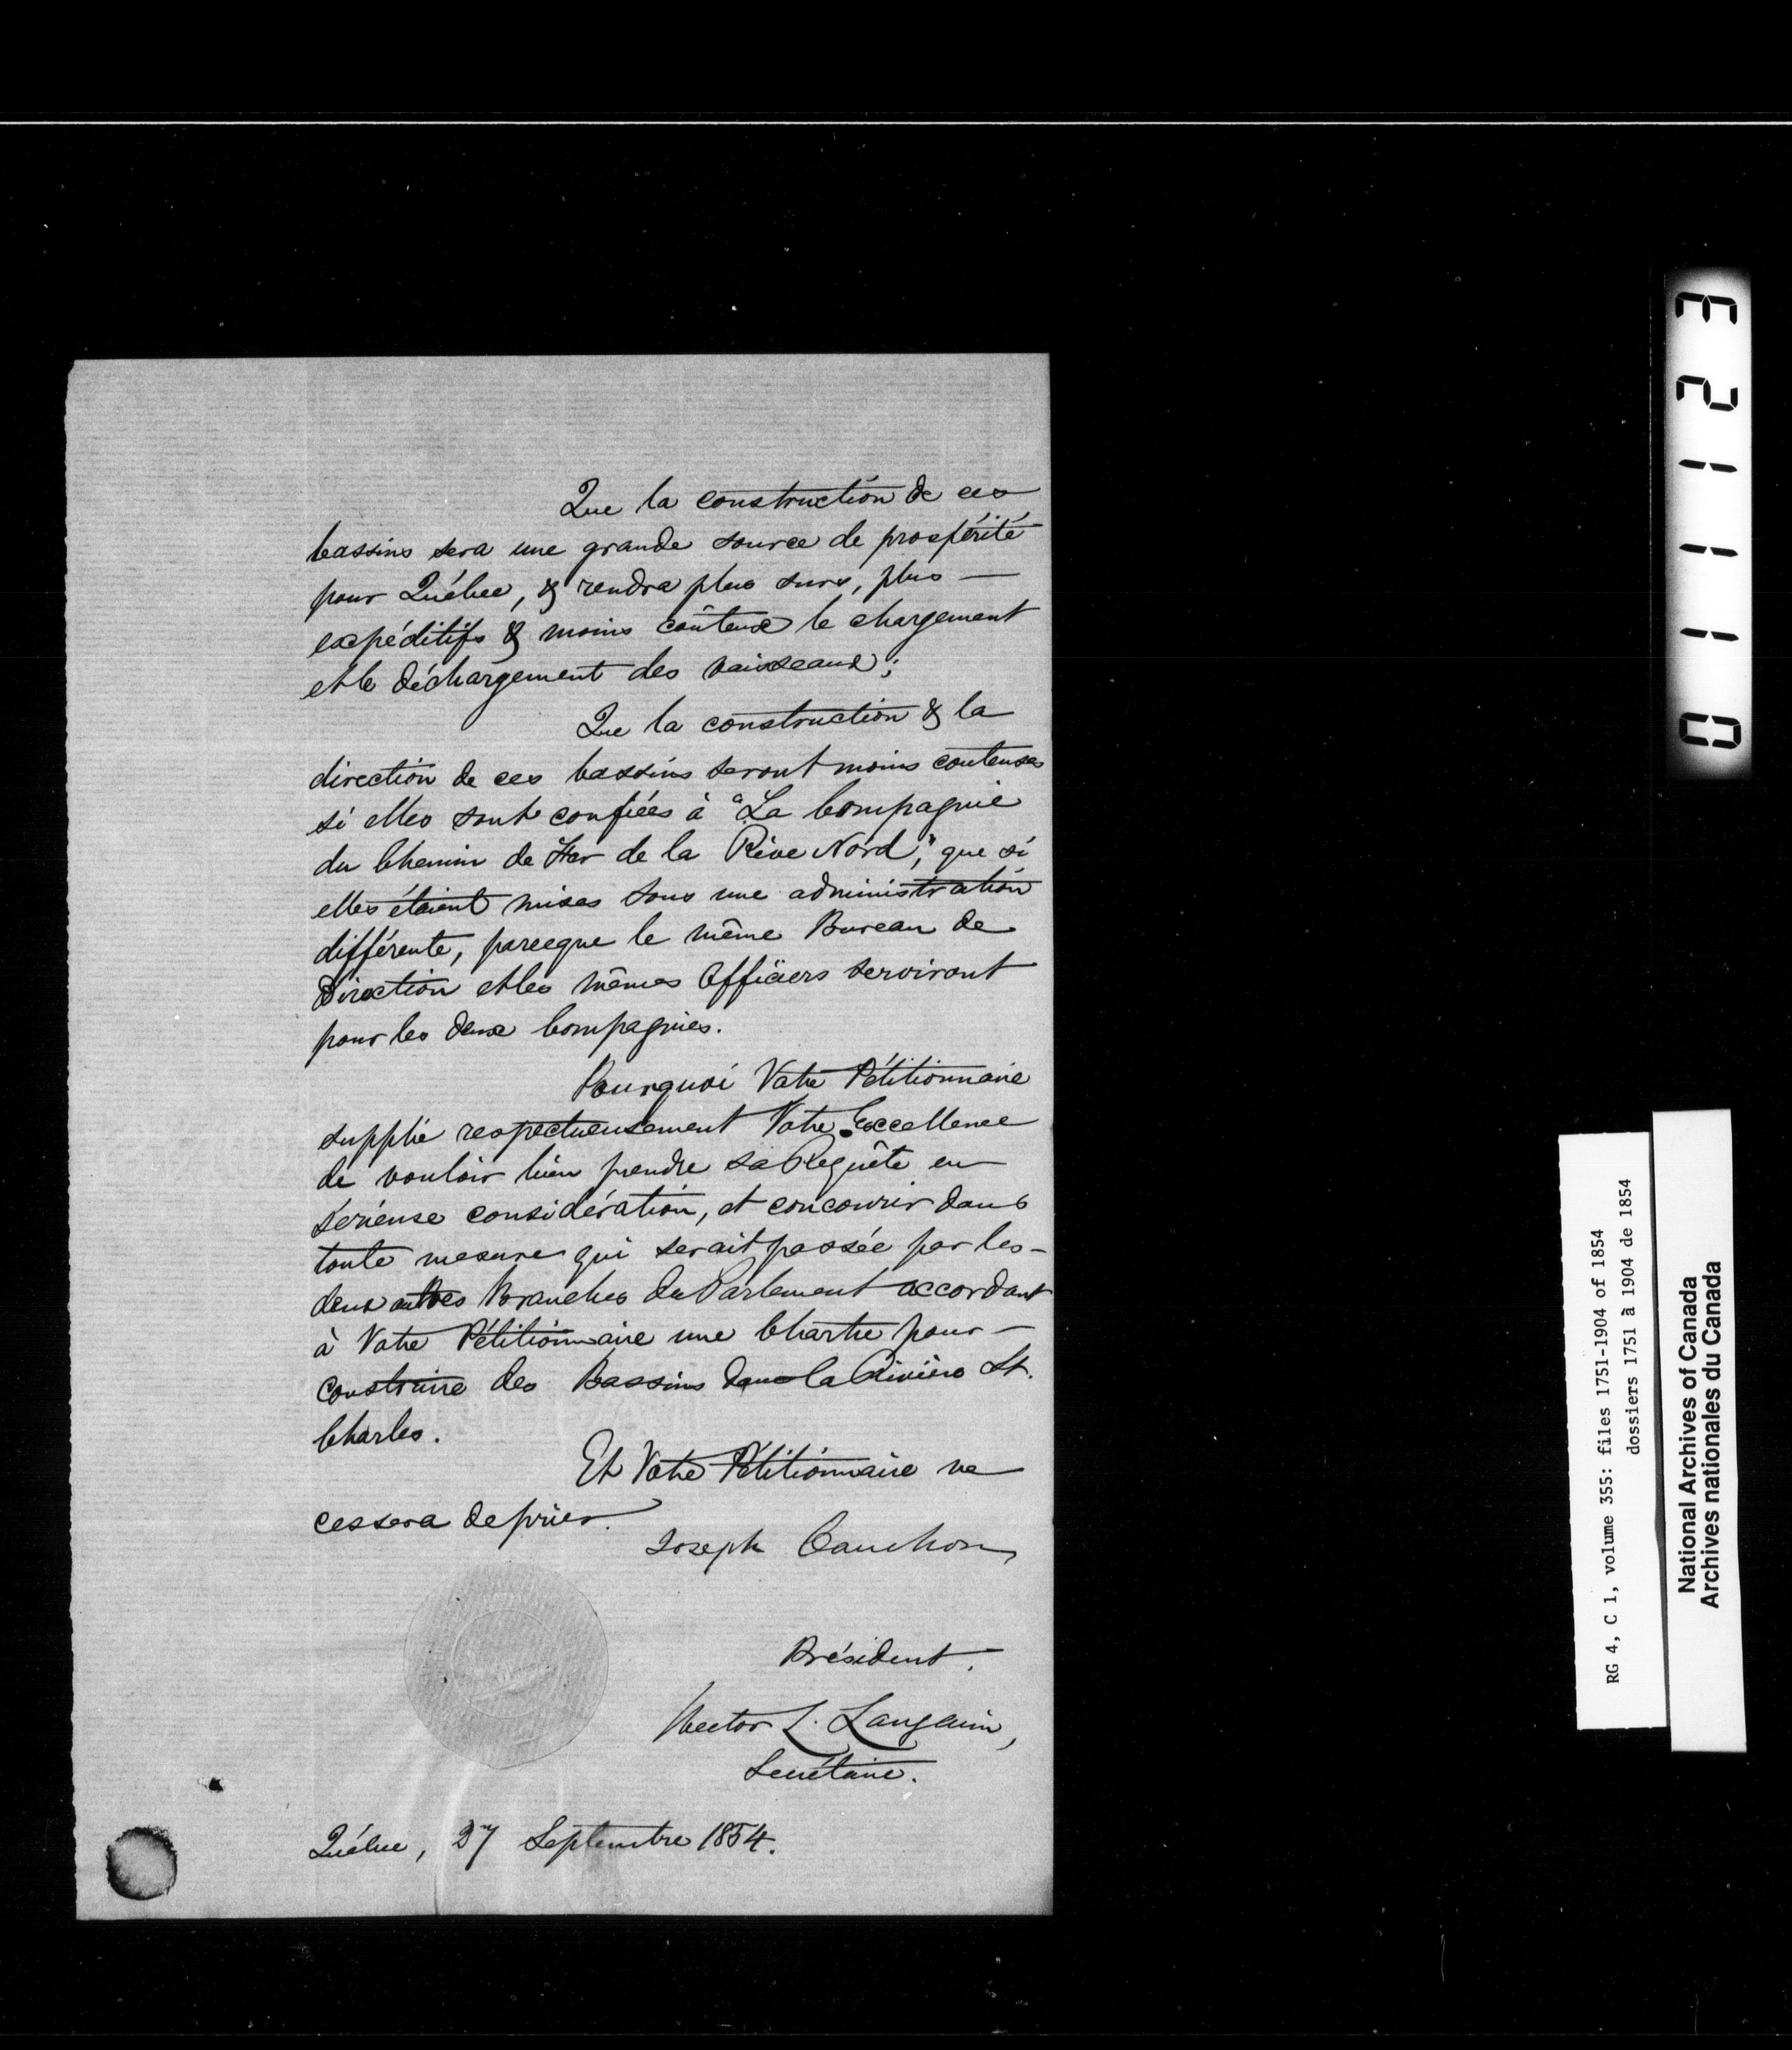 Que la construction de ces
bassins sera une grande source de prospérité
pour Québec, & rendra plus surs, plus —
expéditifs & moins coûteux le chargement
et le déchargement des vaisseaux;
Que la construction & la
direction de ces bassins seront moins couteuses
si elles sont confiées à "La Compagnie
du Chemin de Fer de la Rive Nord," que si
elles étaient mises sous une administration
différente, parceque le même Bureau de
Direction et les mêmes Officiers serviront
pour les deux Compagnies.
Pourquoi Votre Pétitionnaire
supplie respectueusement Votre Excellence
de vouloir bien prendre sa Requête en
sérieuse considération, et concourir dans
toute mesure qui serait passée par les —
deux autres Branches du Parlement accordant
à Votre Pétitionnaire une Charte pour —
construire des Bassins dans la Rivière St.
Charles.
Et Votre Pétitionnaire ne
cessera de prier.
Joseph Cauchon
Président.
Hector L. Langevin,
Secrétaire.
Québec, 27 Septembre 1854.
0 1 1 1 2 3
RG 4, C 1, volume 355: files 1751-1904 of 1854
dossiers 1751 à 1904 de 1854
National Archives of Canada
Archives nationales du Canada